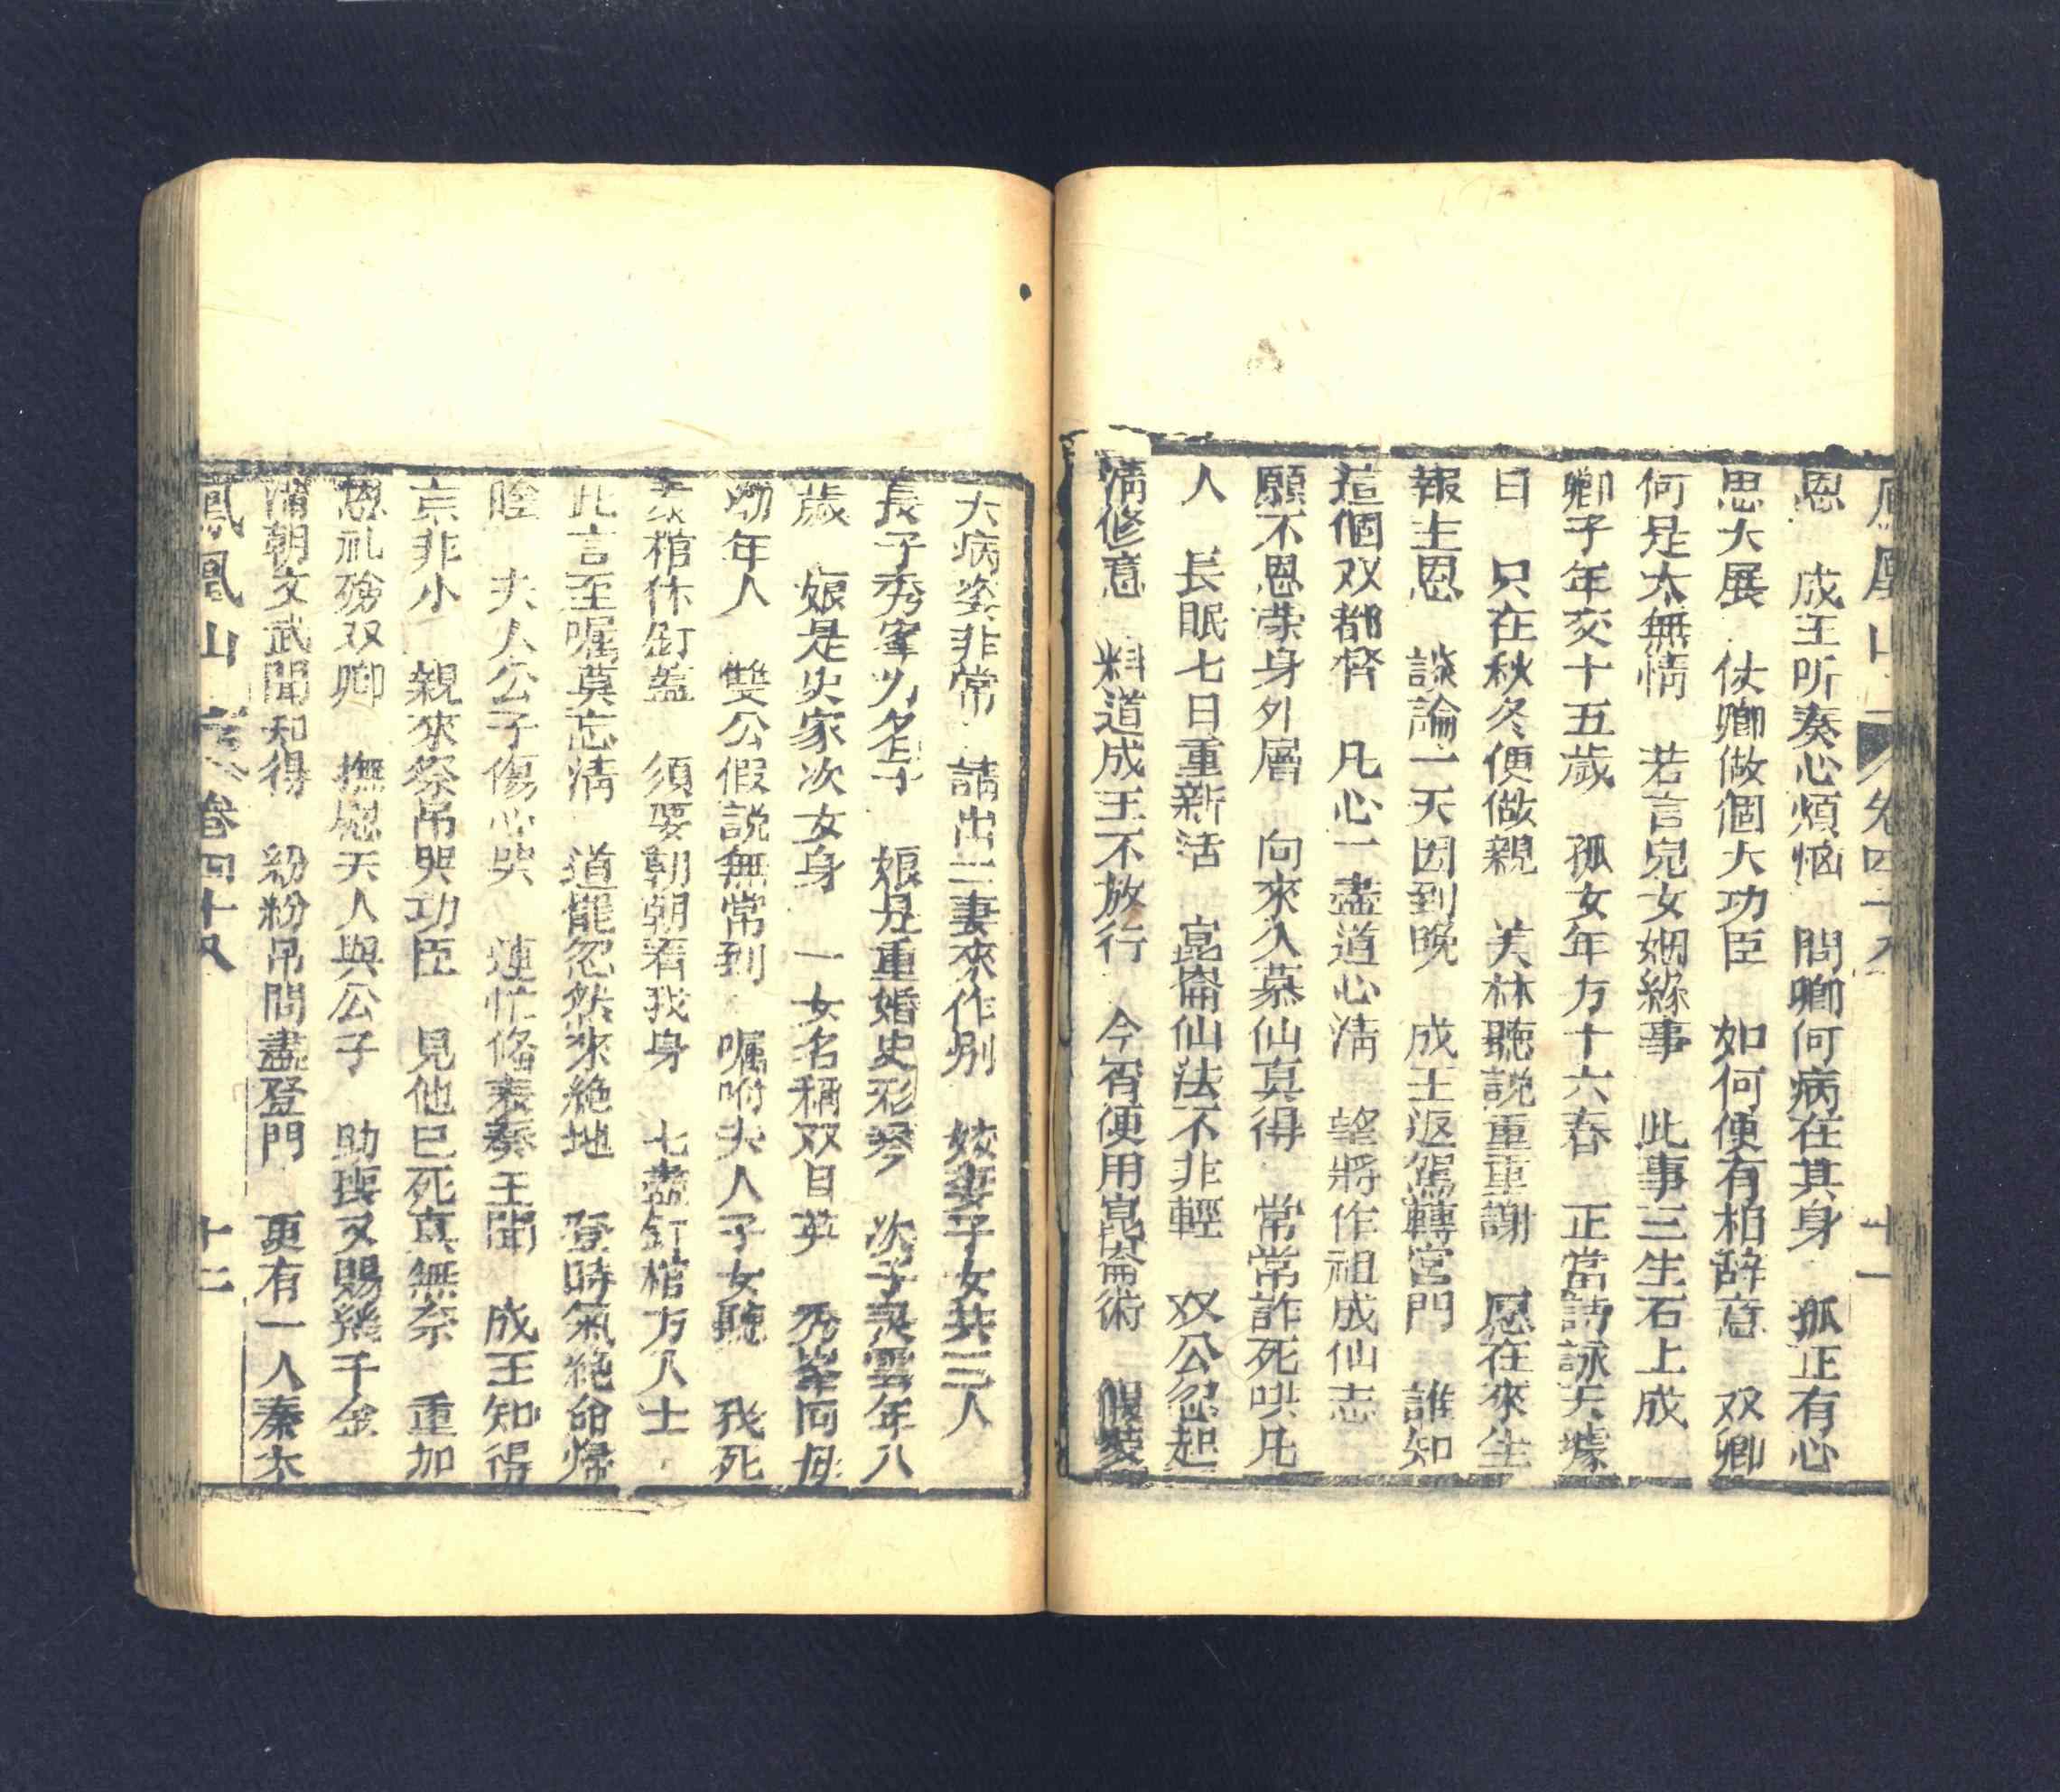 鳳凰山 卷四十八 十一
恩 成王听奏心煩恼 問卿何病在其身 孤正有心
思大展 仗卿做個大功臣 如何便有相辞意 双卿
何是太無情 若言兒女姻緣事 此事三生石上成
卿子年交十五歲 孤女年方十六春 正當詩詠天
日 只在秋冬便做親 美林聽説重重謝 恩在來生
報主恩 談論一天因到晚 成王返駕轉宮門 誰知
這個双都督 凡心一盡道心清 望將作祖成仙志
願不恩荣身外層 向來久慕仙真得 常常詐死哄凡
人 長眠七日重新活 崑崙仙法不非輕 双公忽起
清修意 料道成王不放行 今宵便用崑崙術 假裝
大病姿非常 請出二妻來作别 姣妻子女共三人
長子秀峯乳名 娘是重婚史彩琴 次子灵雲年八
歲 娘是史家次女身 一女名稱双日英 秀峯同母
幼年人 雙公假説無常到 嘱咐夫人子女聽 我死
棺休釘盖 須要朝朝看我身 七盡釘棺方入士
此言至嘱莫忘清 道罷忽然來絶地 登時氣絶命歸
陰 夫人公子傷心哭 連忙修表奏王聞 成王知得
京非小 親來祭吊哭功臣 見他已死真無奈 重加
恩礼殮双卿 撫慰夫人與公子 助丧又賜幾千金
滿朝文武聞知得 紛粉吊問盡登門 更有一人秦太
鳳凰山 卷四十八 十二